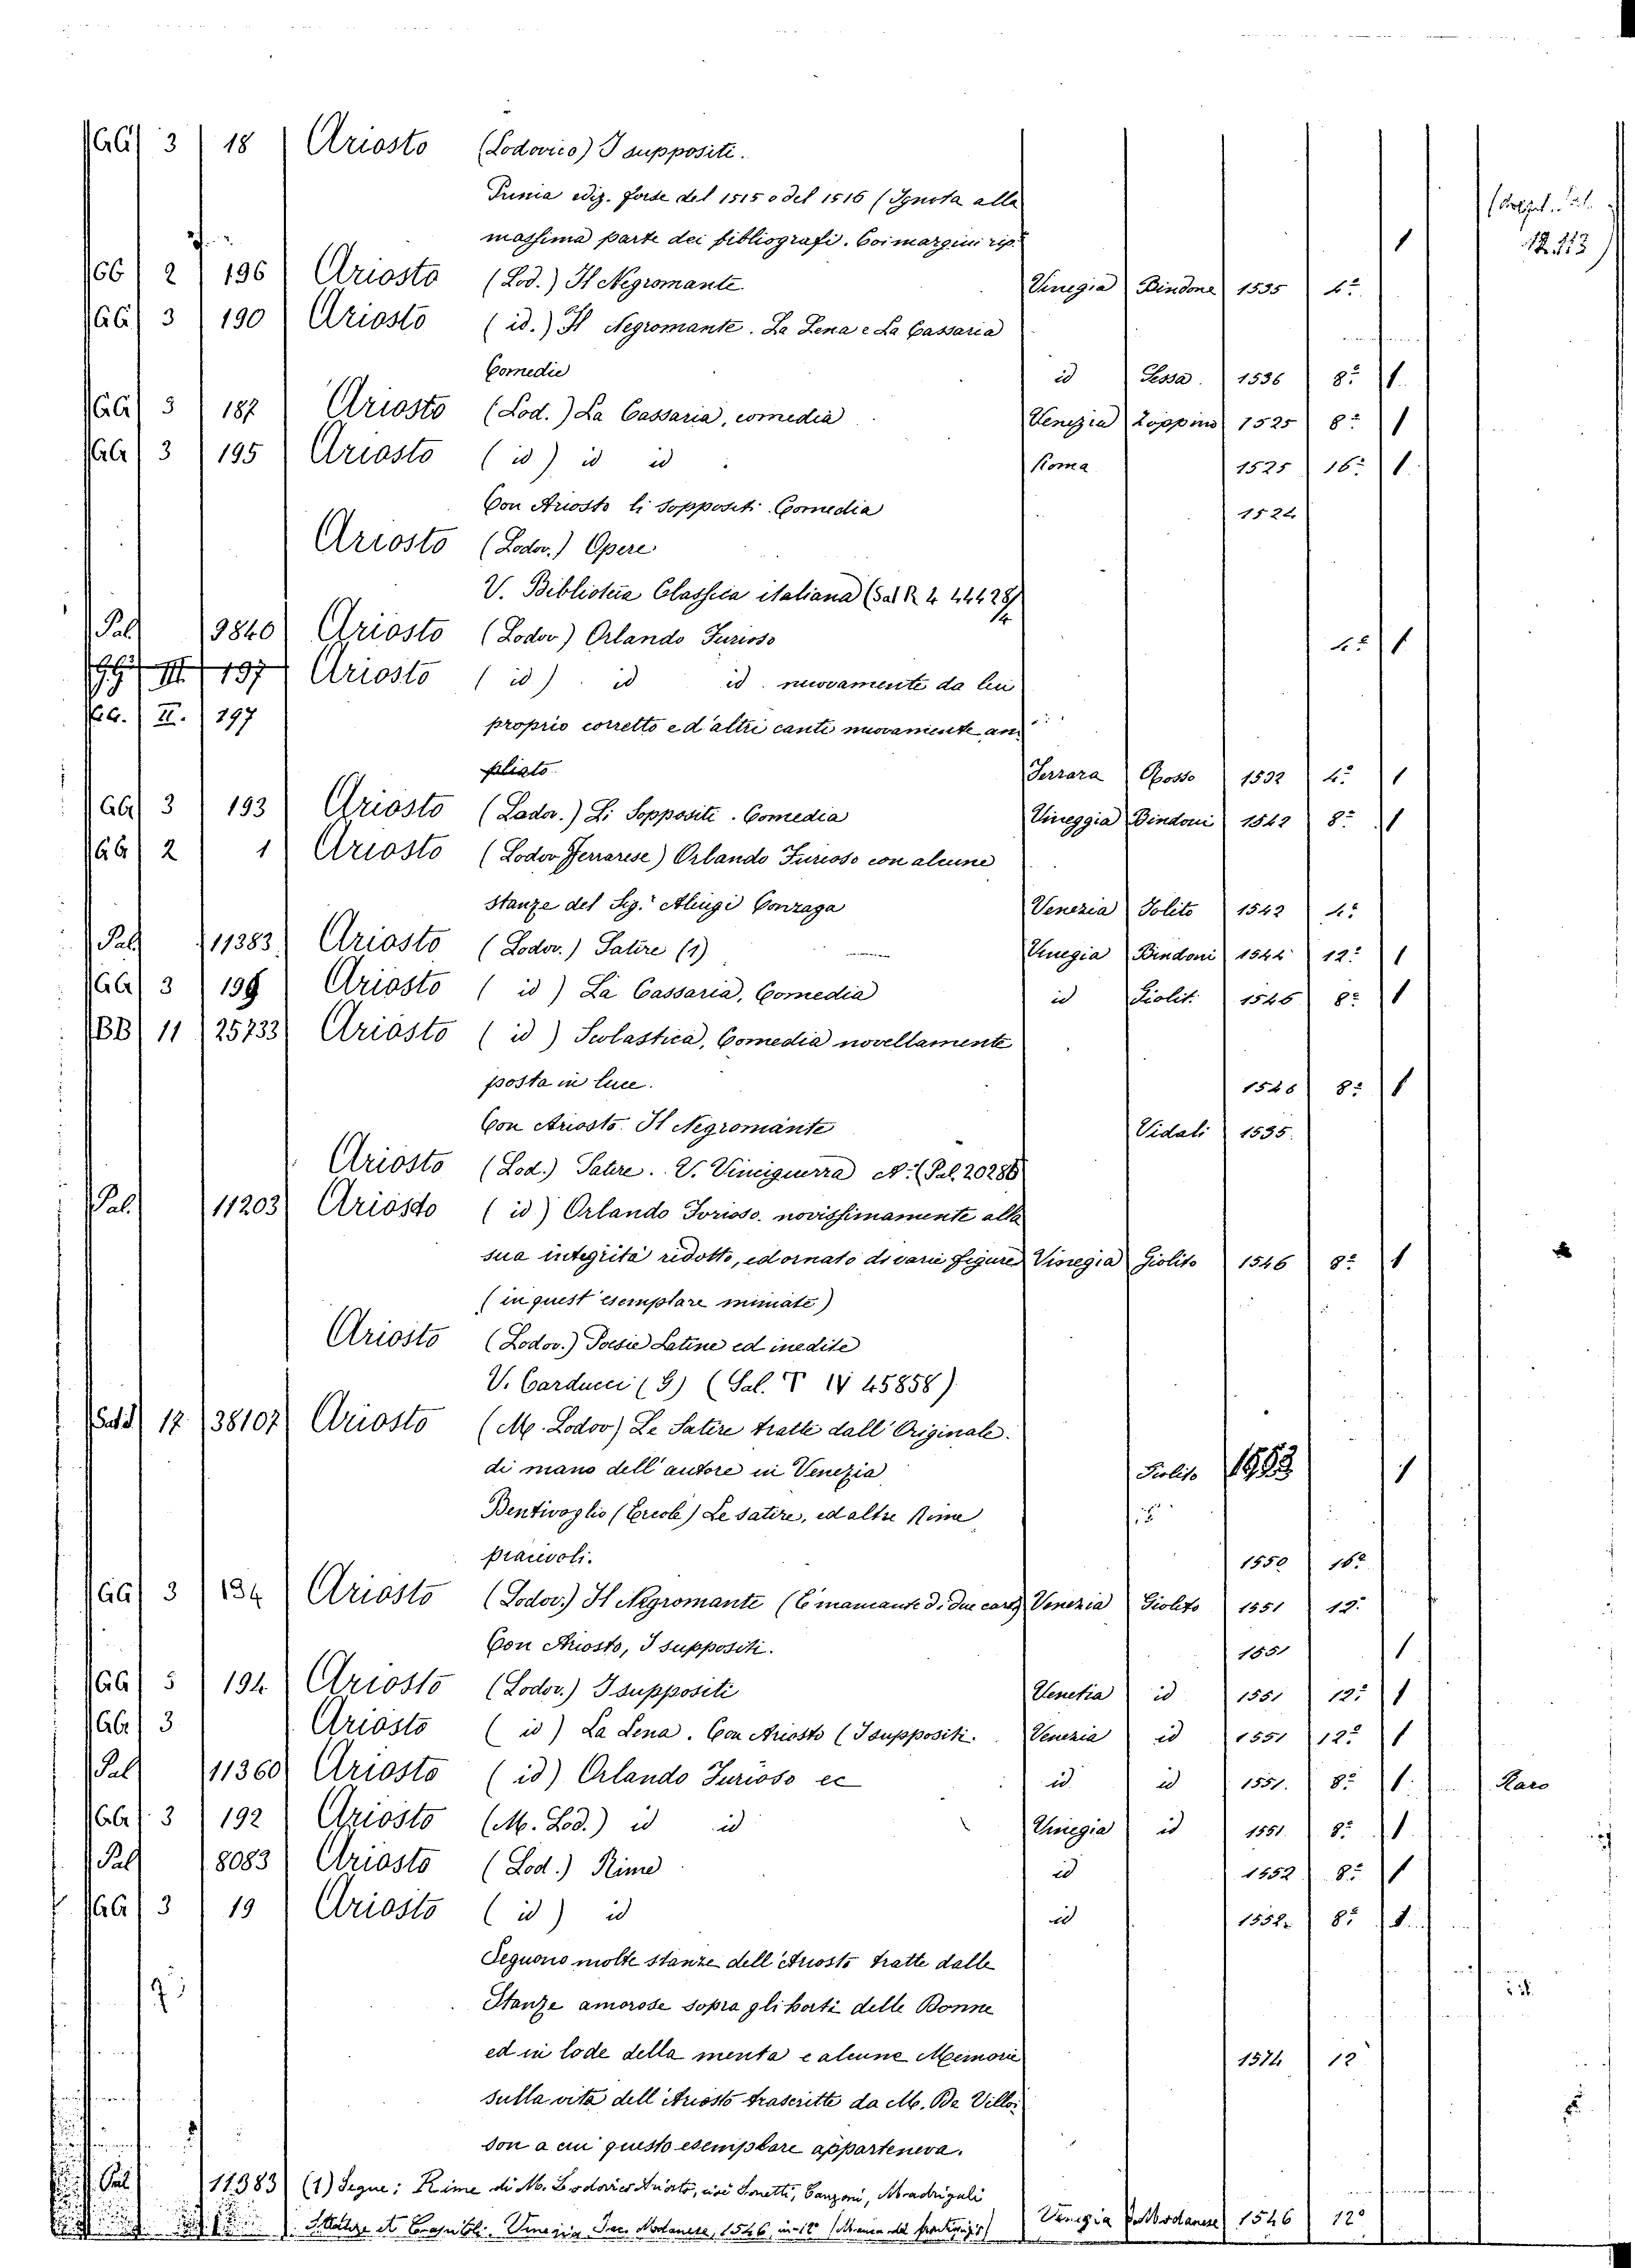 GG 3 18 Ariosto (Lodovico) I suppositi.
Prima ediz. forse del 1515 o del 1516 (Ignota alla
massima parte dei bibliografi. Coi margini rip. 1
GG 2 196 Ariosto (Lod.) Il Negromante. Vinegia Bindone 1535 4º
GG 3 190 Ariosto (id.) Il Negromante. La Lena e La Cassaria
Comedie id Sessa. 1536 8º 1
GG 3 187 Ariosto (Lod.) La Cassaria, comedia Venezia Zoppino 1525 8º 1
GG 3 195 Ariosto (id) id id Roma 1525 16º 1
Con Ariosto li Soppositi Comedia 1524
Ariosto (Lodov.) Opere
V. Biblioteca Classica italiana (Sal R 4 44428/
Pal 9840 Ariosto (Lodov) Orlando Furioso 4º 1
III 197 Ariosto (id) id id. nuovamente da lui
GG. II. 297 proprio corretto e d'altri canti nuovamente am
pliato. Ferrara Rosso 1532 4º 1
GG 3 193 Ariosto (Lodov.) Li Soppositi. Comedia Vineggia Bindoni 1542 8º 1
GG 2 1 Ariosto (Lodov Ferrarese) Orlando Furioso con alcune
stanze del Sig.r Aluigi Gonzaga Venezia Jolito 1542 4º
Pal 11383 Ariosto (Lodov.) Satire (1) Vinegia Bindoni 1544 12º 1
GG 3 199 Ariosto (id) La Cassaria, Comedia id Giolit. 1546 8º 1
BB 11 25733 Ariosto (id) Scolastica, Comedia novellamente
posta in luce. 1546 8º 1
Con Ariosto. Il Negromante Vidali 1535.
Ariosto (Lod.) Satire. V. Vinciguerra A. (Pal. 20286
Pal. 11203 Ariosto (id) Orlando Forioso. novissimamente alla
sua integrità ridotto, ed ornato di varie figure Vinegia Giolito 1546 8º 1
(in quest'esemplare miniate)
Ariosto (Lodov.) Poesie Latine ed inedite
V. Carducci (G) (Sal. T IV 45858)
17 38107 Ariosto (M. Lodov) Le Satire tratte dall'Originale.
di mano dell'autore in Venezia Giolito 1
Bentivoglio (Ercole) Le satire, ed altre Rime
piacevoli. 1550 16º
GG 3 194 Ariosto (Lodov.) Il Negromante (È mancante di due carte) Venezia Giolito 1551 12º
Con Ariosto, I suppositi. 1551 1
GG 5 194 Ariosto (Lodov.) I suppositi Venetia id 1551 12º 1
GG 3 Ariosto (id) La Lena. Con Ariosto (I suppositi. Venezia id 1551 12º 1
Pal 11360 Ariosto (id) Orlando Furioso ec id id 1551. 8º 1 Raro
GG 3 192 Ariosto (M. Lod.) id id Vinegia id 1551 8º 1
Pal 8083 Ariosto (Lod.) Rime id 1552 8º 1
GG 3 19 Ariosto (id) id id 1552. 8º 1
Seguono molte stanze dell'Ariosto tratte dalle
Stanze amorose sopra gli horti delle Donne
ed in lode della menta e alcune Memorie 1574 12
sulla vita dell'Ariosto trascritte da M. De Villoi
son a cui questo esemplare apparteneva.
Pal 11383 (1) Segue: Rime di M. Lodovico Ariosto, cioè Sonetti, Canzoni, Madrigali
Stanze et Capitoli. Venezia Jac. Modanese, 1546, in-12º (Manca del frontespizio) Venegia Modanese 1546 12º